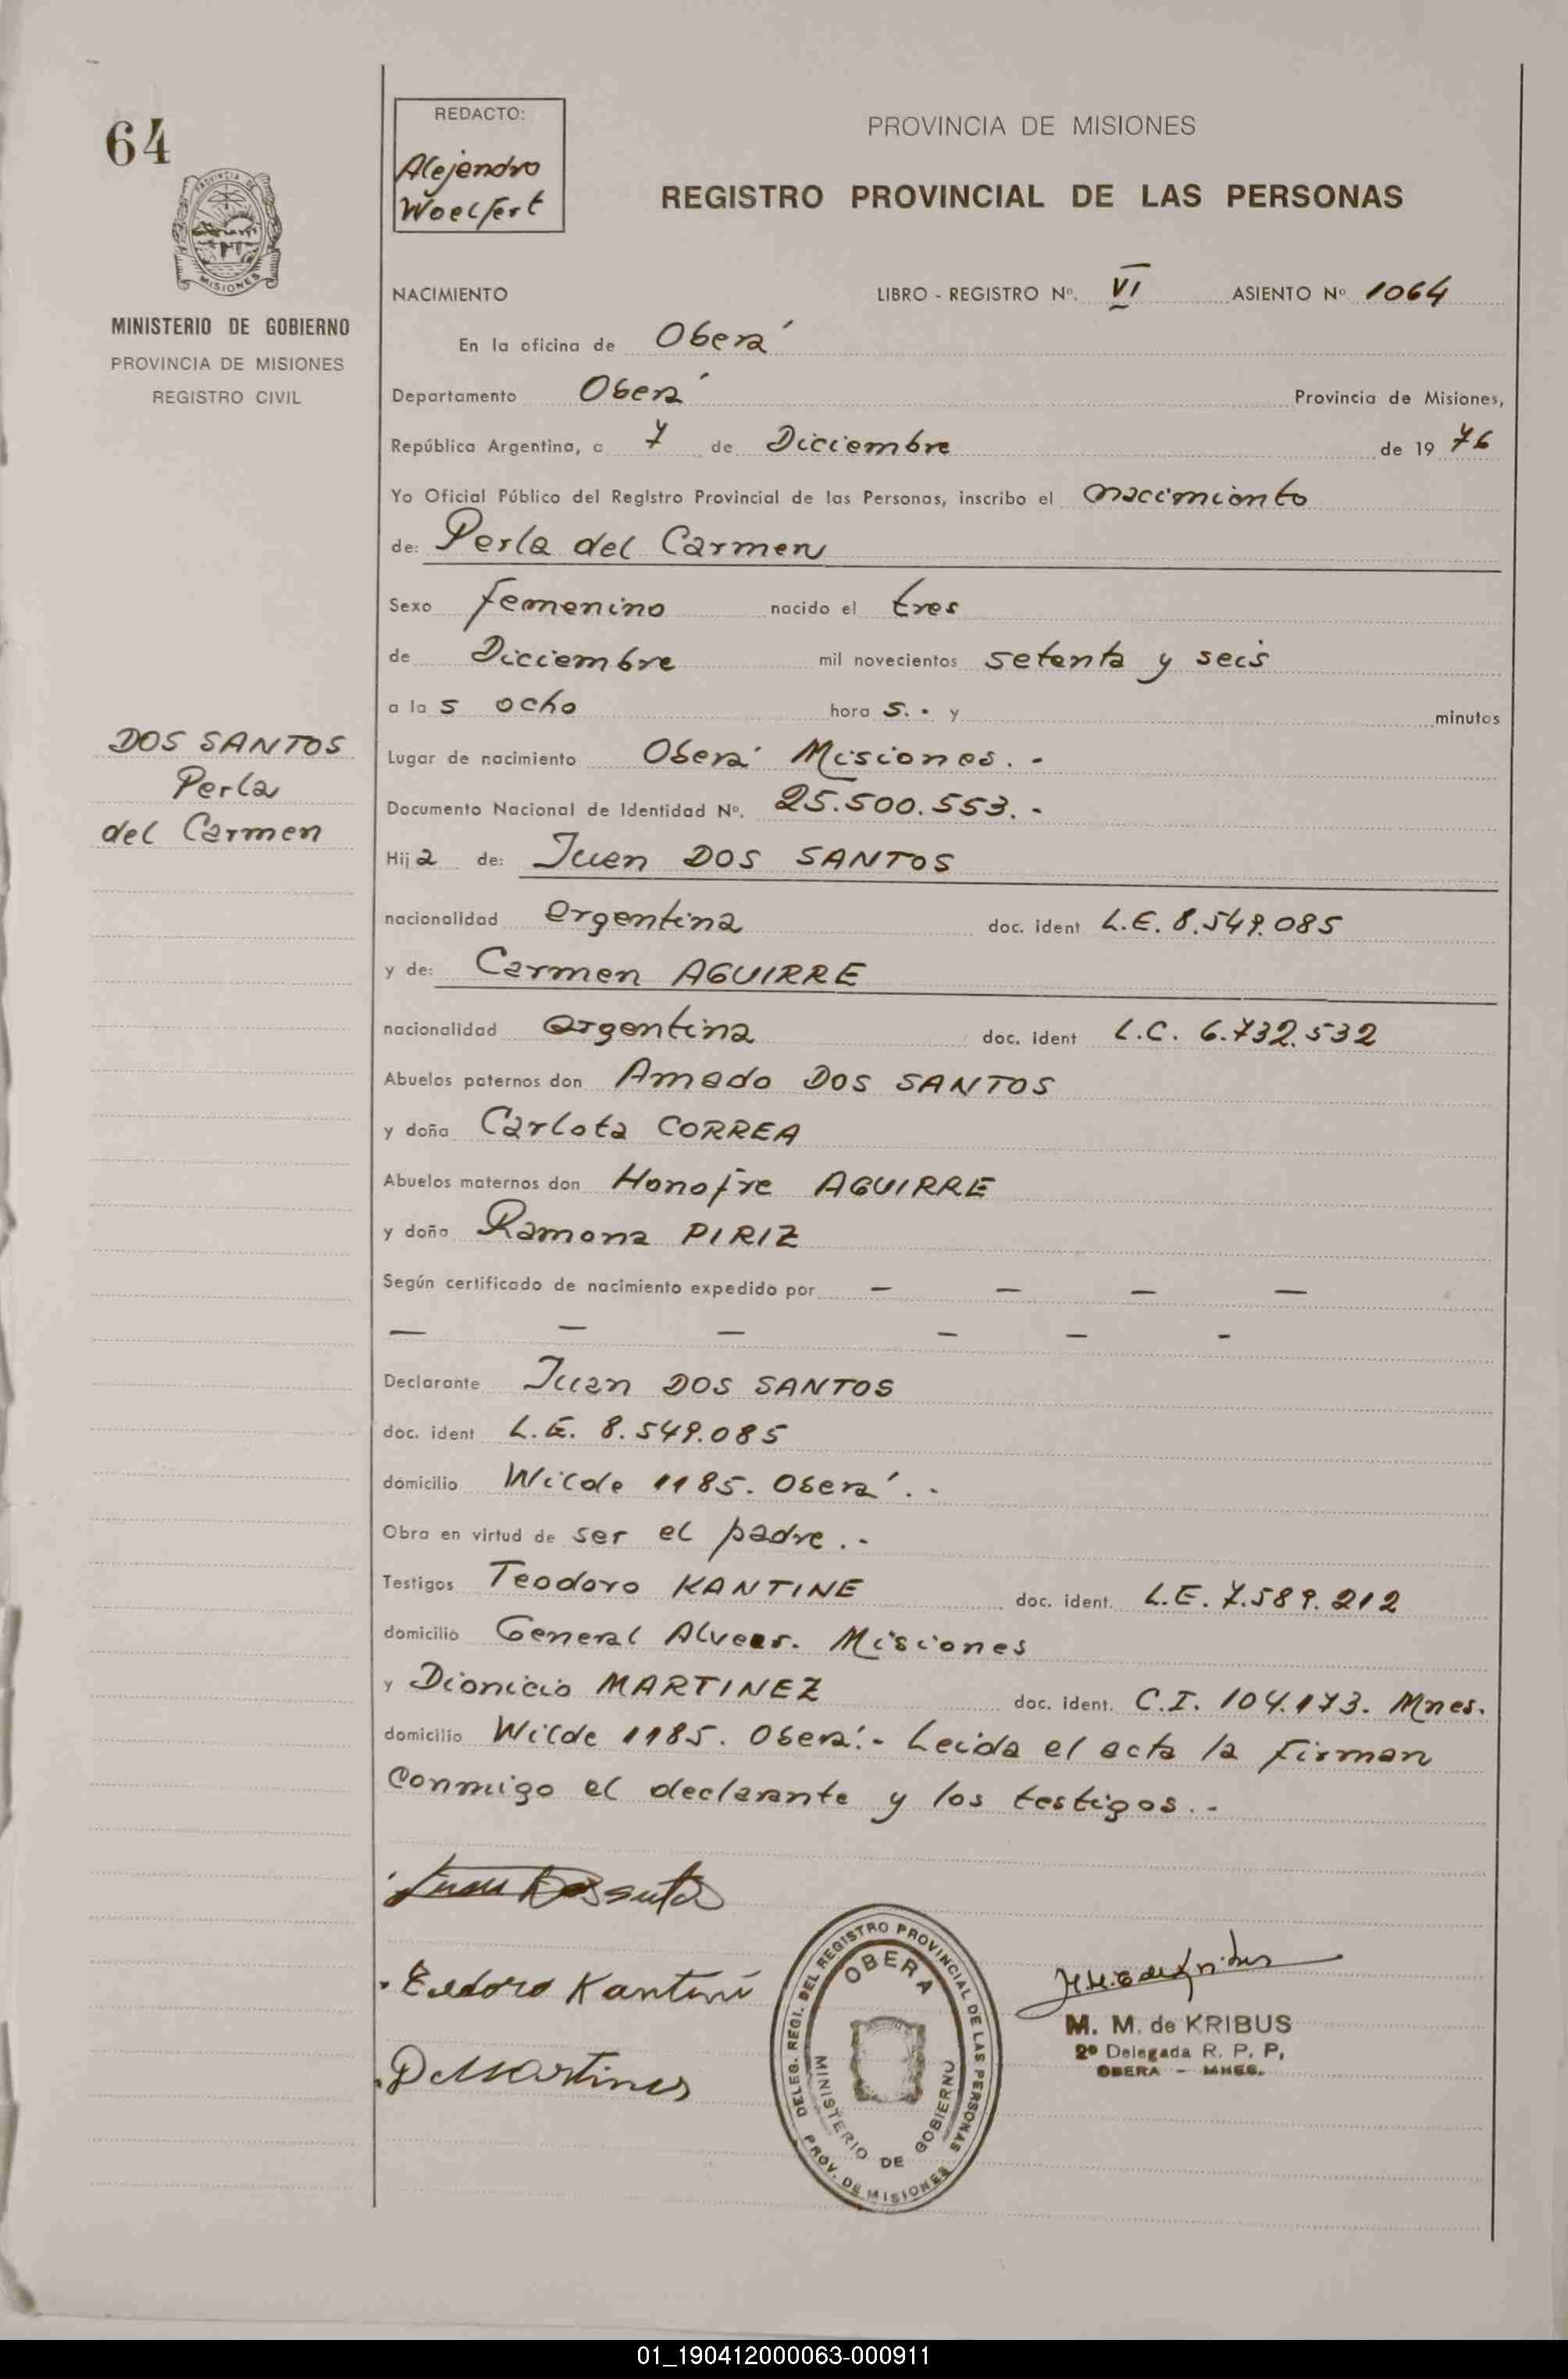 64
MINISTERIO DE GOBIERNO
PROVINCIA DE MISIONES
REGISTRO CIVIL
DOS SANTOS
Perla
del Carmen
REDACTO:
Alejandro
Woelfert
PROVINCIA DE MISIONES
REGISTRO PROVINCIAL DE LAS PERSONAS
NACIMIENTO LIBRO - REGISTRO Nº. VI ASIENTO Nº 1064
En la oficina de Oberá
Departamento Oberá Provincia de Misiones,
República Argentina, a 7 de Diciembre de 19 76
Yo Oficial Público del Registro Provincial de las Personas, inscribo el nacimiento
de: Perla del Carmen
Sexo femenino nacido el tres
de Diciembre mil novecientos setenta y seis
a la s ocho hora s. - y minutos
Lugar de nacimiento Oberá Misiones. -
Documento Nacional de Identidad Nº. 25.500.553. -
Hij a de: Juan DOS SANTOS
nacionalidad argentina doc. ident L.E. 8.549.085
y de: Carmen AGUIRRE
nacionalidad argentina doc. ident L.C. 6.732.532
Abuelos paternos don Amado DOS SANTOS
y doña Carlota CORREA
Abuelos maternos don Honofre AGUIRRE
y doña Ramona PIRIZ
Según certificado de nacimiento expedido por — — — —
— — — — — -
Declarante Juan DOS SANTOS
doc. ident L.E. 8.549.085
domicilio Wilde 1185. Oberá. -
Obra en virtud de ser el padre. -
Testigos Teodoro KANTINE doc. ident. L.E. 7.589.212
domicilio General Alvear. Misiones
y Dionicio MARTINEZ doc. ident. C.I. 104.173. Mnes.
domicilio Wilde 1185. Oberá. - Leida el acta la firman
conmigo el declarante y los testigos. -
Kantini
D Martines
DELEG. REGI. DEL REGISTRO PROVINCIAL DE LAS PERSONAS
OBERA
MINISTERIO DE GOBIERNO
PROV. DE MISIONES
M. M. de KRIBUS
2º Delegada R. P. P,
OBERA - MNES.
01_190412000063-000911